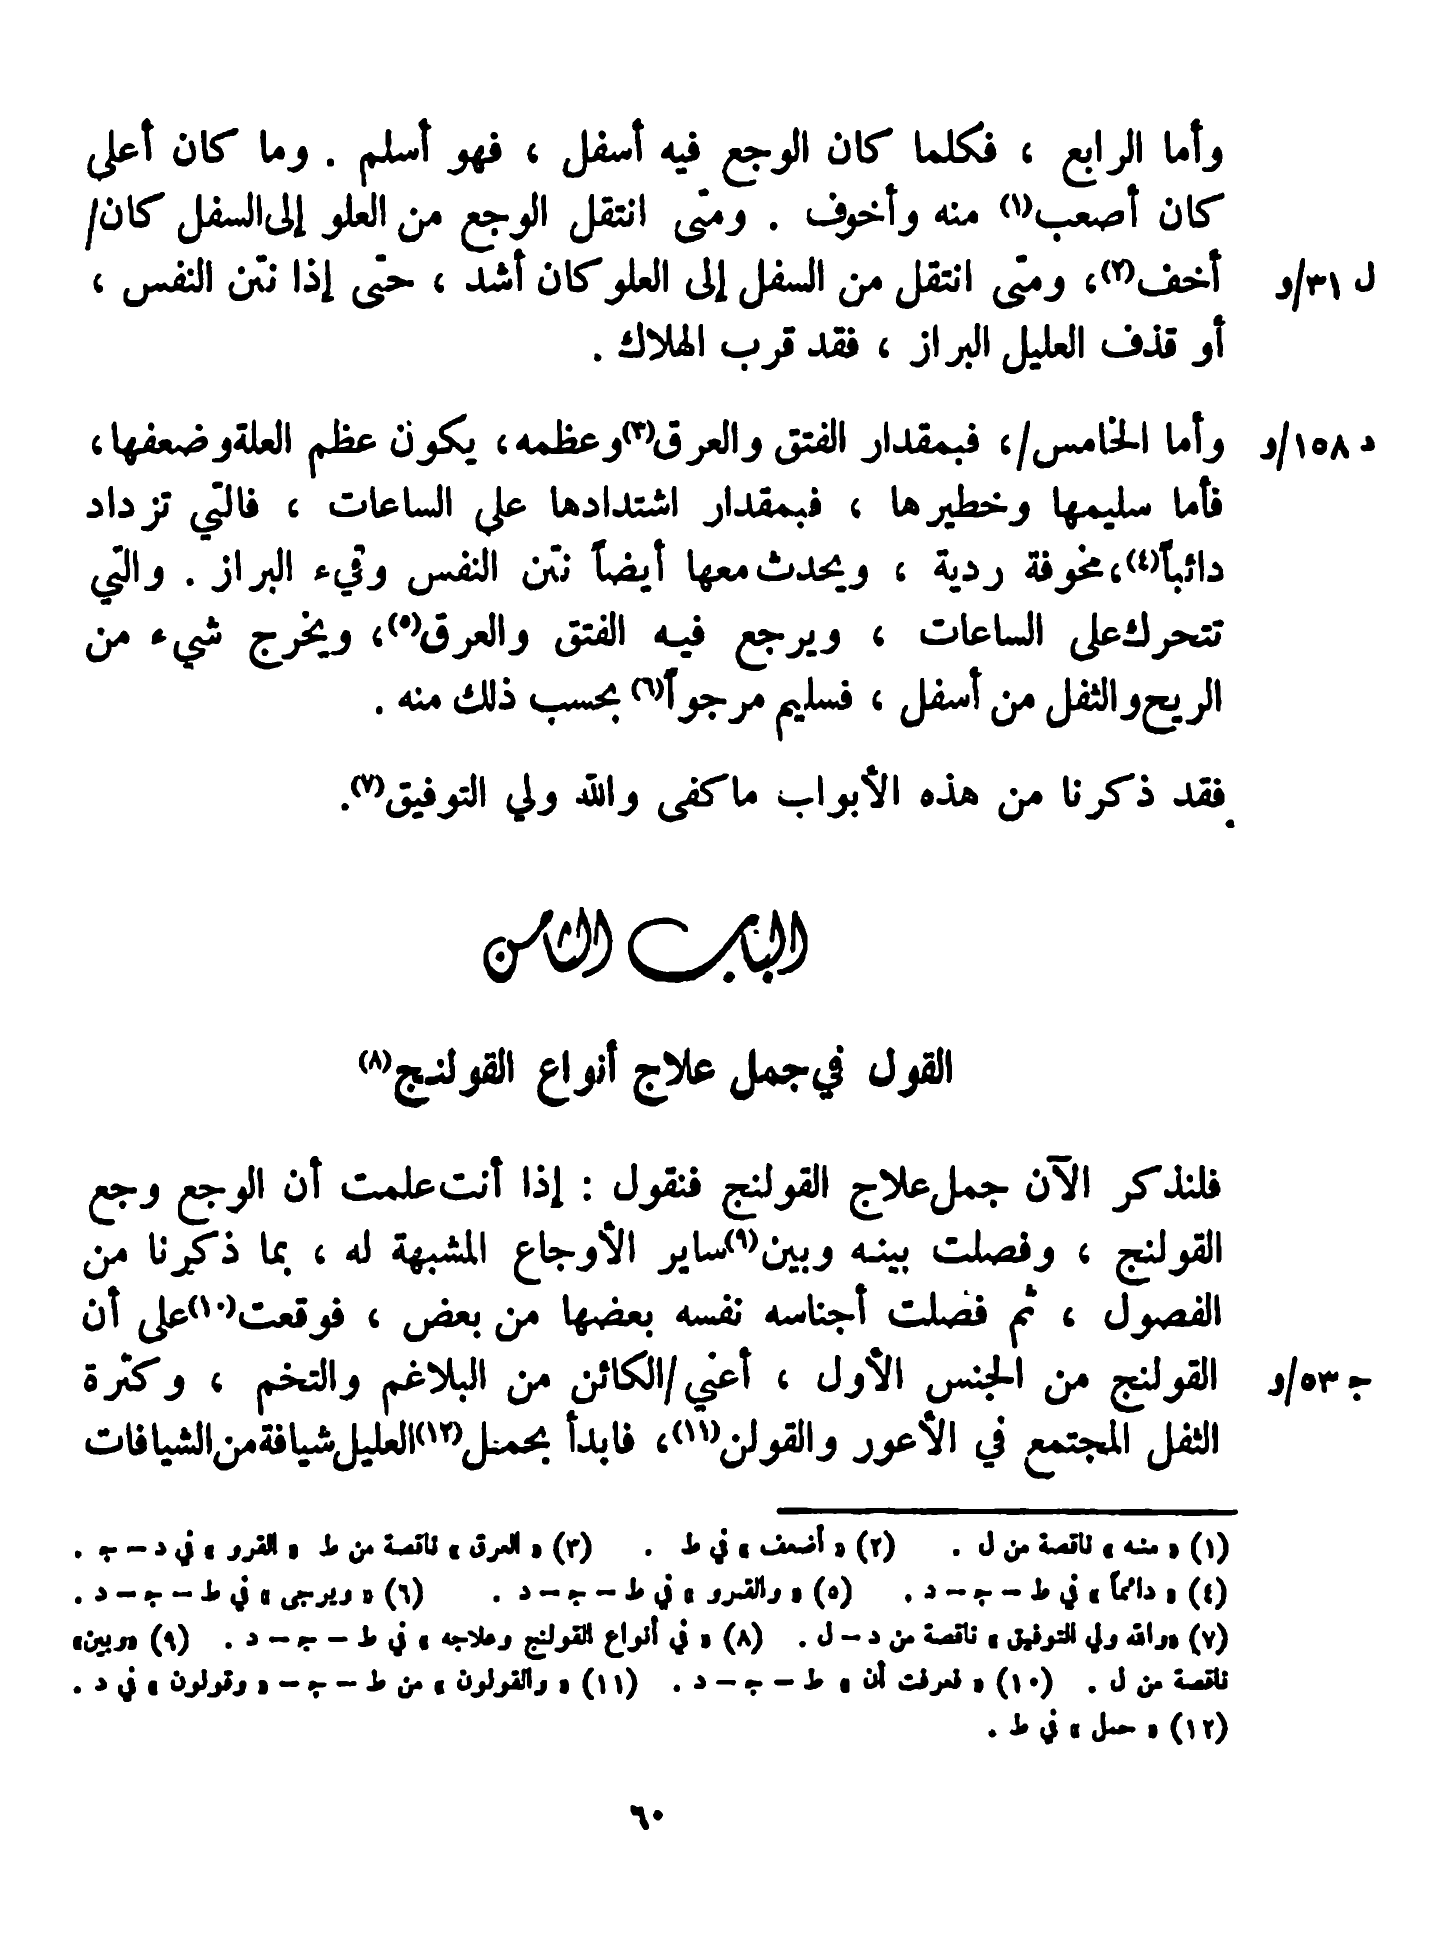 وأما الرابع ، فكلما كان الوجع فيه أسفل ، فهو أسلم . وما كان أعلى
كان أصعب(١) منه وأخوف . ومتى انتقل الوجع من العلو إلى السفل كان/
ل ٣١/و أخف(٢)، ومتى انتقل من السفل إلى العلو كان أشد ، حتى إذا نتن النفس ،
أو قذف العليل البراز ، فقد قرب الهلاك .
د ١٥٨/و وأما الخامس/، فبمقدار الفتق والعرق(٣) وعظمه، يكون عظم العلة وضعفها،
فأما سليمها وخطيرها ، فبمقدار اشتدادها على الساعات ، فالتي تزداد
دائباً(٤)، مخوفة ردية ، ويحدث معها أيضاً نتن النفس وقيء البراز . والتي
تتحرك على الساعات ، ويرجع فيه الفتق والعرق(٥)، ويخرج شيء من
الريح والثفل من أسفل ، فسليم مرجواً(٦) بحسب ذلك منه .
فقد ذكرنا من هذه الأبواب ما كفى والله ولي التوفيق(٧).
الباب الثامن
القول في جمل علاج أنواع القولنج(٨)
فلنذكر الآن جمل علاج القولنج فنقول : إذا أنت علمت أن الوجع وجع
القولنج ، وفصلت بينه وبين(٩) ساير الأوجاع المشبهة له ، بما ذكرنا من
الفصول ، ثم فصلت أجناسه نفسه بعضها من بعض ، فوقعت(١٠) على أن
ج ٥٣/و القولنج من الجنس الأول ، أعني/الكائن من البلاغم والتخم ، وكثرة
الثفل المجتمع في الأعور والقولن(١١)، فابدأ بحمل(١٢) العليل شيافة من الشيافات
(١) « منه » ناقصة من ل . (٢) « أضعف » في ط . (٣) « العرق » ناقصة من ط « القرو » في د – ج .
(٤) « دائماً » في ط – ج – د . (٥) « والقرو » في ط – ج – د . (٦) « ويرجى » في ط – ج – د .
(٧) «والله ولي التوفيق» ناقصة من د – ل . (٨) « في أنواع القولنج وعلاجه » في ط – ج – د . (٩) «وبين»
ناقصة من ل . (١٠) « فعرفت أن » ط – ج – د . (١١) « والقولون » من ط – ج – « وقولون » في د .
(١٢) « حمل » في ط .
٦٠